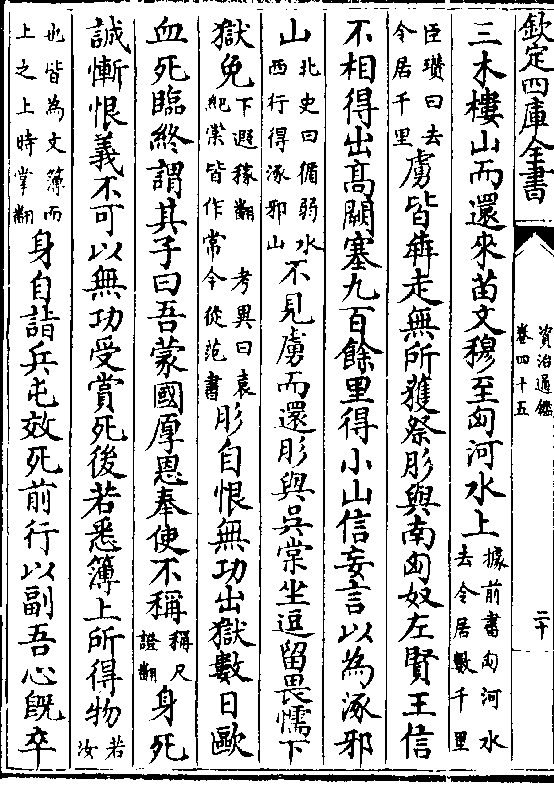 欽定四庫全書
資治通鑑
卷四十五
二十
三木樓山而還來苗文穆至匈河水上據前書匈河水去令居數千里
臣瓚曰去令居千里虜皆犇走無所獲祭肜與南匈奴左賢王信
不相得出髙闕塞九百餘里得小山信妄言以為涿邪
山北史曰循弱水西行得涿邪山不見虜而還肜與吳棠坐逗留畏懦下
獄免下遐稼翻考異曰袁紀棠皆作常今從范書肜自恨無功出獄數日歐
血死臨終謂其子曰吾蒙國厚恩奉使不稱稱尺證翻身死
誠慚恨義不可以無功受賞死後若悉簿上所得物若汝
也皆為文簿而上之上時掌翻身自詣兵屯效死前行以副吾心既卒